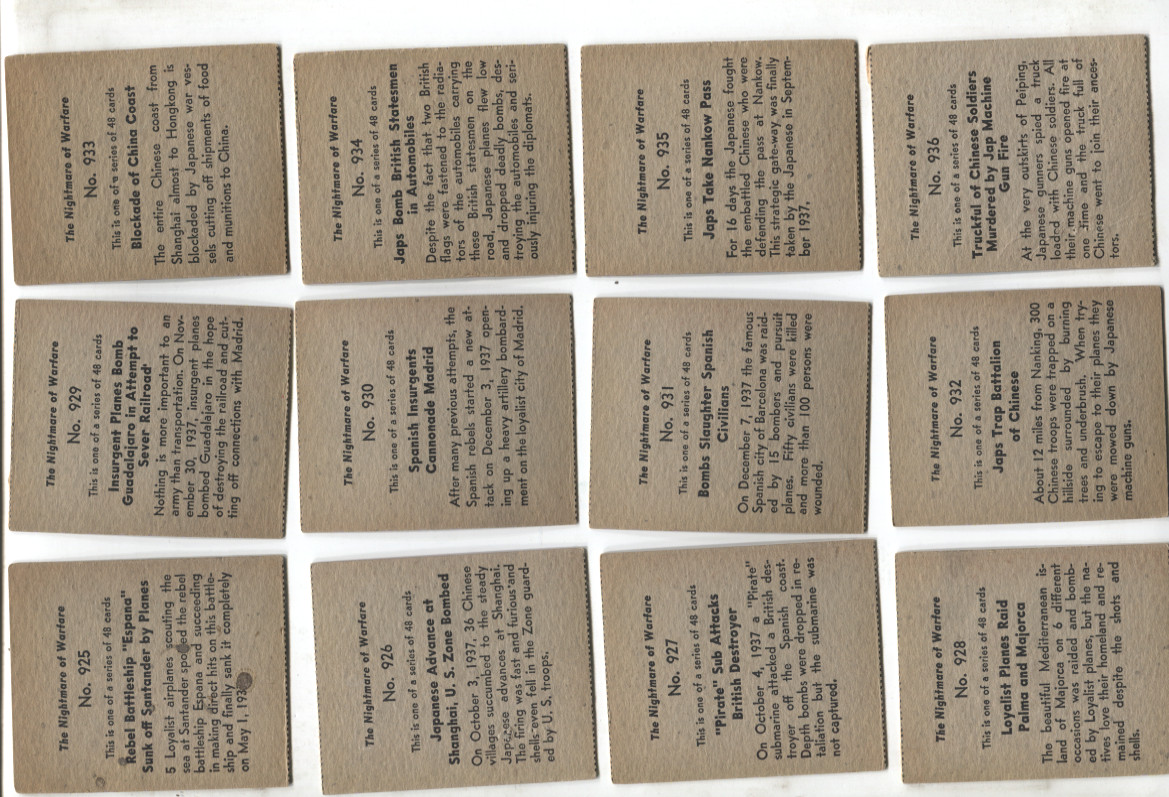 The Nightmare of Warfare
No. 925
This is one of a series of 48 cards
Rebel Battleship "Espana"
Sunk off Santander by Planes
5 Loyalist airplanes scouting the
sea at Santander spotted the rebel
battleship Espana and succeeding
in making direct hits on this battle-
ship and finally sank it completely
on May 1, 193
The Nightmare of Warfare
No. 926
This is one of a series of 48 cards
Japanese Advance at
Shanghai, U. S. Zone Bombed
On October 3, 1937, 36 Chinese
villages succumbed to the steady
Japanese advances at Shanghai.
The firing was fast and furious and
shells even fell in the Zone guard-
ed by U. S. troops.
The Nightmare of Warfare
No. 927
This is one of a series of 48 cards
"Pirate" Sub Attacks
British Destroyer
On October 4, 1937 a "Pirate"
submarine attacked a British des-
troyer off the Spanish coast.
Depth bombs were dropped in re-
taliation but the submarine was
not captured.
The Nightmare of Warfare
No. 928
This is one of a series of 48 cards
Loyalist Planes Raid
Palma and Majorca
The beautiful Mediterranean is-
land of Majorca on 6 different
occasions was raided and bomb-
ed by Loyalist planes, but the na-
tives love their homeland and re-
mained despite the shots and
shells.
The Nightmare of Warfare
No. 929
This is one of a series of 48 cards
Insurgent Planes Bomb
Guadalajaro in Attempt to
Sever Railroad
Nothing is more important to an
army than transportation. On Nov-
ember 30, 1937, insurgent planes
bombed Guadalajaro in the hope
of destroying the railroad and cut-
ting off connections with Madrid.
The Nightmare of Warfare
No. 930
This is one of a series of 48 cards
Spanish Insurgents
Cannonade Madrid
After many previous attempts, the
Spanish rebels started a new at-
tack on December 3, 1937 open-
ing up a heavy artillery bombard-
ment on the loyalist City of Madrid.
The Nightmare of Warfare
No. 931
This is one of a series of 48 cards
Bombs Slaughter Spanish
Civilians
On December 7, 1937 the famous
Spanish city of Barcelona was raid-
ed by 15 bombers and pursuit
planes. Fifty civilians were killed
and more than 100 persons were
wounded.
The Nightmare of Warfare
No. 932
This is one of a series of 48 cards
Japs Trap Battalion
of Chinese
About 12 miles from Nanking, 300
Chinese troops were trapped on a
hillside surrounded by burning
trees and underbrush. When try-
ing to escape to their planes they
were mowed down by Japanese
machine guns.
The Nightmare of Warfare
No. 933
This is one of a series of 48 cards
Blockade of China Coast
The entire Chinese coast from
Shanghai almost to Hongkong is
blockaded by Japanese war ves-
sels cutting off shipments of food
and munitions to China.
The Nightmare of Warfare
No. 934
This is one of a series of 48 cards
Japs Bomb British Statesmen
in Automobiles
Despite the fact that two British
flags were fastened to the radia-
tors of the automobiles carrying
these British statesmen on the
road, Japanese planes flew low
and dropped deadly bombs, des-
troying the automobiles and seri-
ously injuring the diplomats.
The Nightmare of Warfare
No. 935
This is one of a series of 48 cards
Japs Take Nankow Pass
For 16 days the Japanese fought
the embattled Chinese who were
defending the pass at Nankow.
This strategic gate-way was finally
taken by the Japanese in Septem-
ber 1937.
The Nightmare of Warfare
No. 936
This is one of a series of 48 cards
Truckful of Chinese Soldiers
Murdered by Jap Machine
Gun Fire
At the very outskirts of Peiping,
Japanese gunners spied a truck
loaded with Chinese soldiers. All
their machine guns opened fire at
one time and the truck full of
Chinese went to join their ances-
tors.